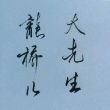 大先生
龍橋